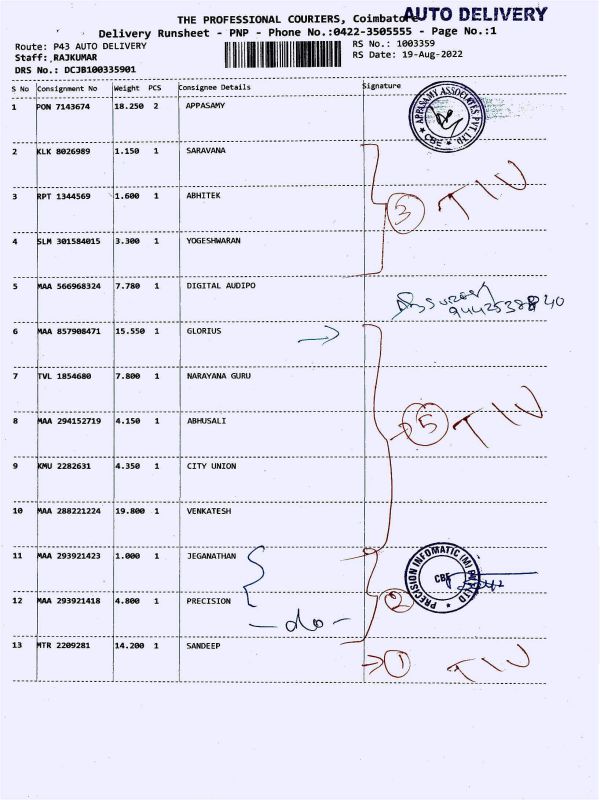 THE PROFESSIONAL COURIERS, Coimbatore
AUTO DELIVERY
Delivery Runsheet - PNP - Phone No.:0422-3505555 - Page No.:1
Route: P43 AUTO DELIVERY
RS No.: 1003359
Staff: RAJKUMAR
RS Date: 19-Aug-2022
DRS No.: DCJB100335901
S No Consignment No Weight PCS Consignee Details Signature
1 PON 7143674 18.250 2 APPASAMY
APPASAMY ASSOCIATES PVT. LTD. CBE
2 KLK 8026989 1.150 1 SARAVANA
3 RPT 1344569 1.600 1 ABHITEK
3
4 SLM 301584015 3.300 1 YOGESHWARAN
5 MAA 566968324 7.780 1 DIGITAL AUDIPO
6 MAA 857908471 15.550 1 GLORIUS
7 TVL 1854680 7.800 1 NARAYANA GURU
8 MAA 294152719 4.150 1 ABHUSALI
5
9 KMU 2282631 4.350 1 CITY UNION
10 MAA 288221224 19.800 1 VENKATESH
11 MAA 293921423 1.000 1 JEGANATHAN
PRECISION INFOMATIC (M) PVT LTD CBE
12 MAA 293921418 4.800 1 PRECISION
2
- do -
13 MTR 2209281 14.200 1 SANDEEP
1